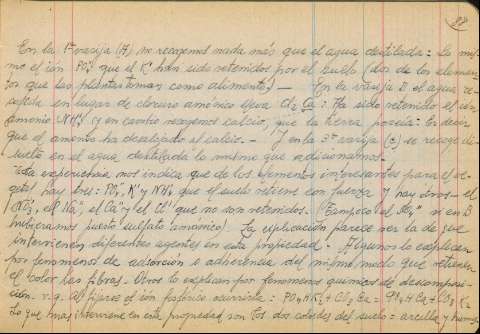 88
En la 1ª vasija (A) no recogemos nada más que el agua destilada: lo mis-
mo el ión PO₄''' que el K' han sido retenidos por el suelo (dos de los elemen-
tos que las plantas toman como alimento). — En la vasija B el agua re-
cogida en lugar de cloruro amónico lleva Cl₂ Ca: Ha sido retenido el ión
amonio (NH₄') y en cambio recogemos calcio, que la tierra poseía: Es decir
que el amonio ha desalojado al calcio. — Y en la 3ª vasija (C) se recoge di-
suelto en el agua destilada lo mismo que adicionamos.
Esta experiencia nos indica que de los elementos interesantes para el ve-
getal hay tres: PO₄''', K' y NH₄' que el suelo retiene con fuerza y hay otros — el
NO₃', el Na', el Ca'' y el Cl' que no son retenidos. (Tampoco el SO₄'' si en B
hubiéramos puesto sulfato amónico). La explicación parece ser la de que
intervienen diferentes agentes en esta propiedad. Algunos lo explican
por fenómenos de adsorción o adherencia del mismo modo que retienen
el color las fibras. Otros lo explican por fenómenos químicos de descomposi-
ción. v.g. al fijarse el ión fosfórico ocurriría: PO₄HK₂ + Cl₂Ca = PO₄H Ca + Cl₂K₂
Lo que más interviene en esta propiedad son los dos coloides del suelo: arcilla y humus